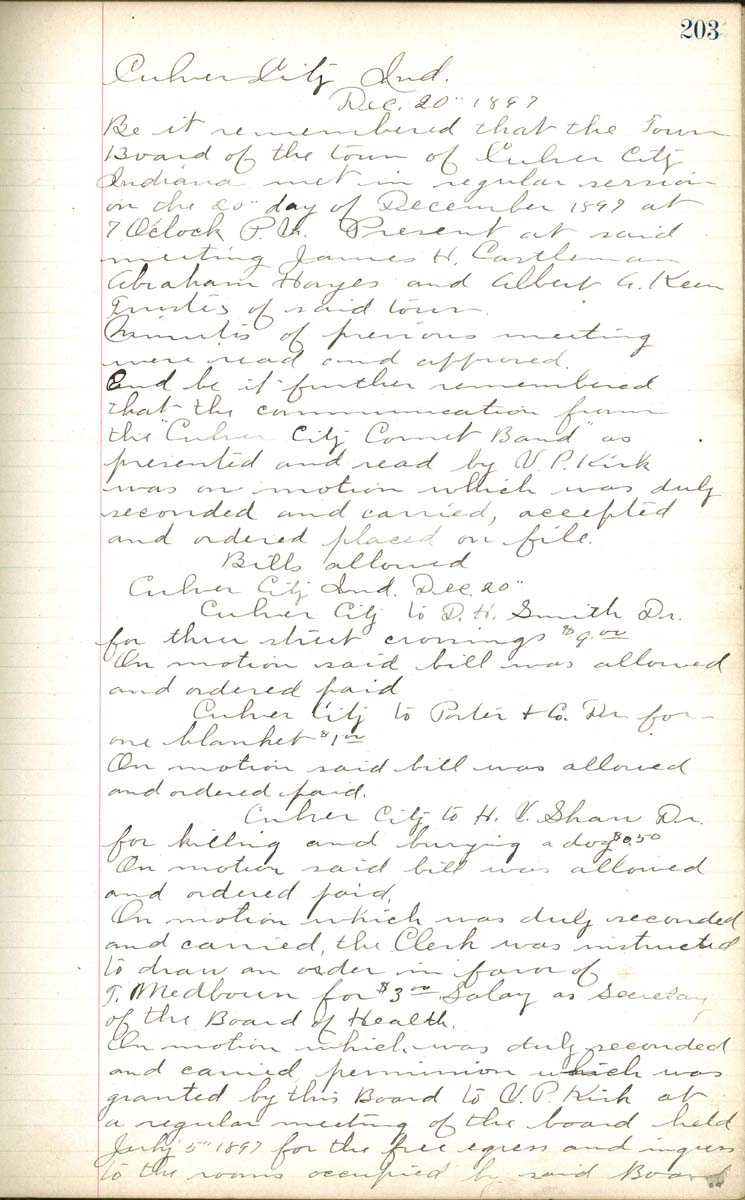 203
Culver City Ind.
Dec. 20" 1897
Be it remembered that the Town
Board of the town of Culver City
Indiana met in regular session
on the 20" day of December 1897 at
7 Oclock P.M. Present at said
meeting James H. Castleman
Abraham Hayes and Albert A. Keen
Trustes of said town.
Minutis of previous meeting
were read and approved.
And be it further remembered
that the communication from
the "Culver City Cornet Band" as
presented and read by U. P. Kirk
was on motion which was duly
seconded and carried, accepted
and ordered placed on file.
Bills allowed
Culver City Ind. Dec. 20"
Culver City to D. H. Smith Dr.
for three street crossings $9.00
On motion said bill was allowed
and ordered paid
Culver City to Porter & Co. Dr. for
one blanket $1.00
On motion said bill was allowed
and ordered paid.
Culver City to H. V. Shaw Dr.
for killing and burying a dog $0.50
On motion said bill was allowed
and ordered paid.
On motion which was duly seconded
and carried, the Clerk was instructed
to draw an order in favor of
T. Medbourn for $3.00 Salay as Secretay
of the Board of Health.
On motion which was duly seconded
and carried permission which was
granted by this Board to U. P. Kirk at
a regular meeting of the board held
July 5" 1897 for the free egress and ingress
to the rooms occupied by said Board